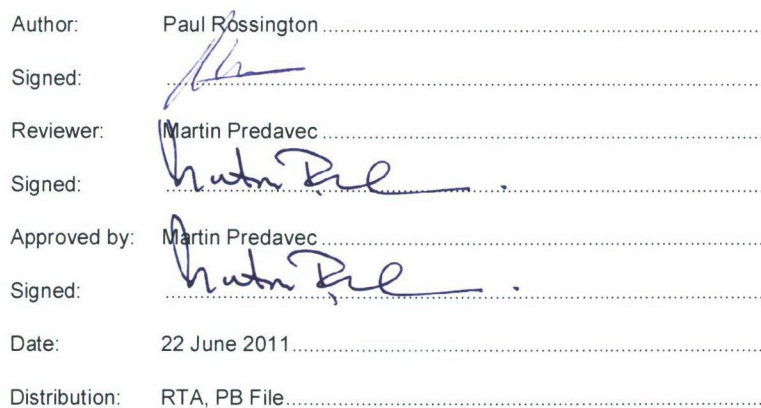 Author: Paul Rossington
Signed:
Reviewer: Martin Predavec
Signed:
Approved by: Martin Predavec
Signed:
Date: 22 June 2011
Distribution: RTA, PB File